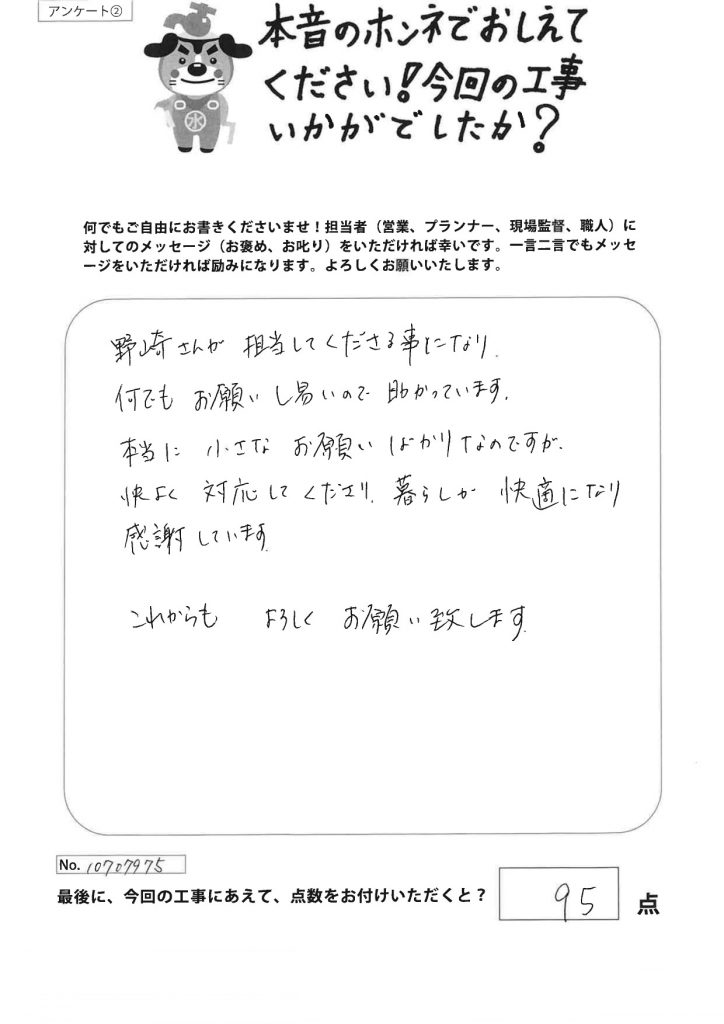 アンケート②
本音のホンネでおしえて
ください!今回の工事
いかがでしたか?
水
何でもご自由にお書きくださいませ!担当者(営業、プランナー、現場監督、職人)に
対してのメッセージ(お褒め、お叱り)をいただければ幸いです。一言二言でもメッセ
ージをいただければ励みになります。よろしくお願いいたします。
野崎さんが 担当してくださる事になり、
何でも お願いし易いので 助かっています。
本当に 小さな お願いばかりなのですが、
快よく 対応してくださり、暮らしが 快適になり
感謝しています。
これからも よろしく お願い致します。
No. 10707975
最後に、今回の工事にあえて、点数をお付けいただくと? 95 点